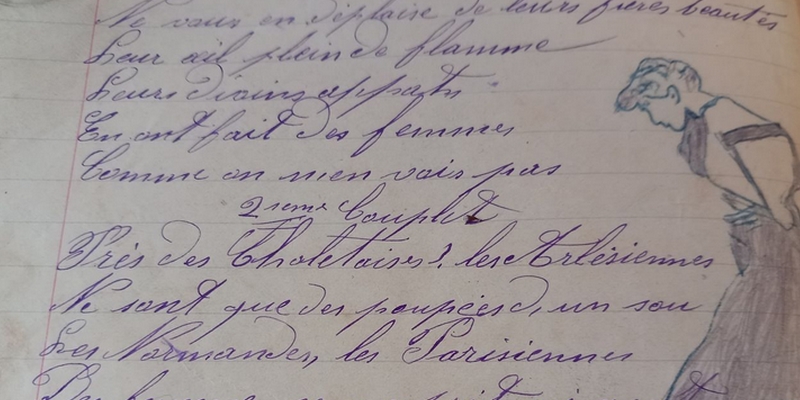 Ne vous en déplaise de leurs fières beautés
Leur œil plein de flamme
Leurs divins appats
En ont fait des femmes
Comme on n'en vois pas
2ieme Couplet
Près des Choletaises, les Arlésiennes
Ne sont que des poupées d'un sou
Les Normandes, les Parisiennes